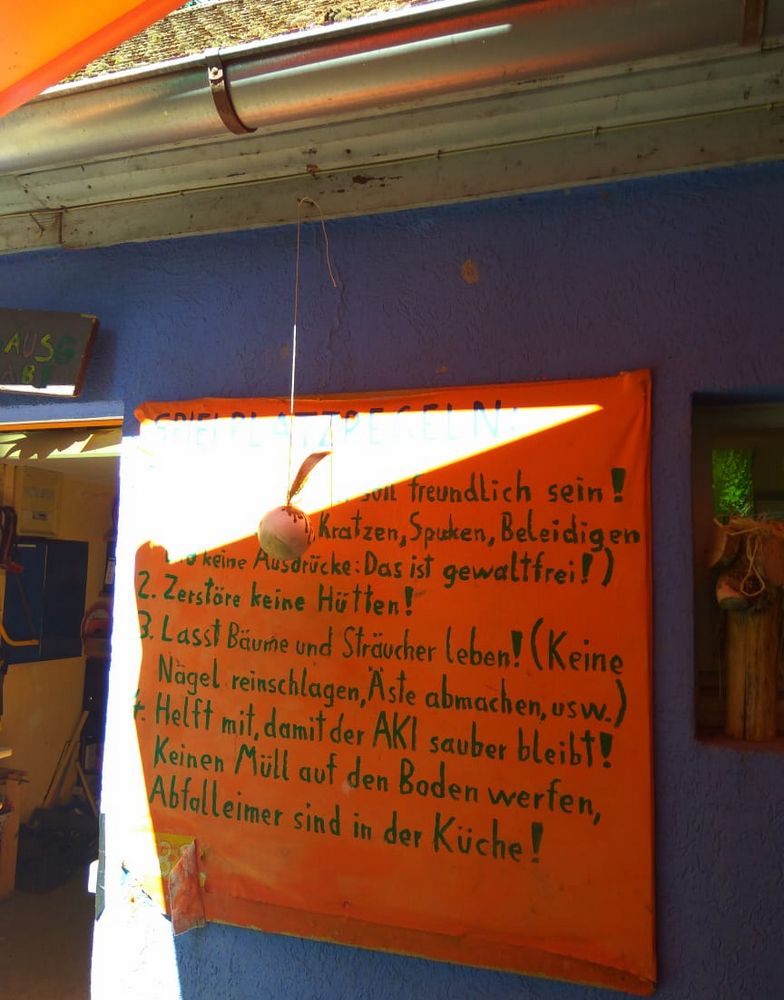 AUSG
AB
SPIELPLATZREGELN:
soll freundlich sein!
Kratzen, Spucken, Beleidigen
keine Ausdrücke: Das ist gewaltfrei!)
2. Zerstöre keine Hütten!
3. Lasst Bäume und Sträucher leben! (Keine
Nägel reinschlagen, Äste abmachen, usw.)
4. Helft mit, damit der AKI sauber bleibt!
Keinen Müll auf den Boden werfen,
Abfalleimer sind in der Küche!